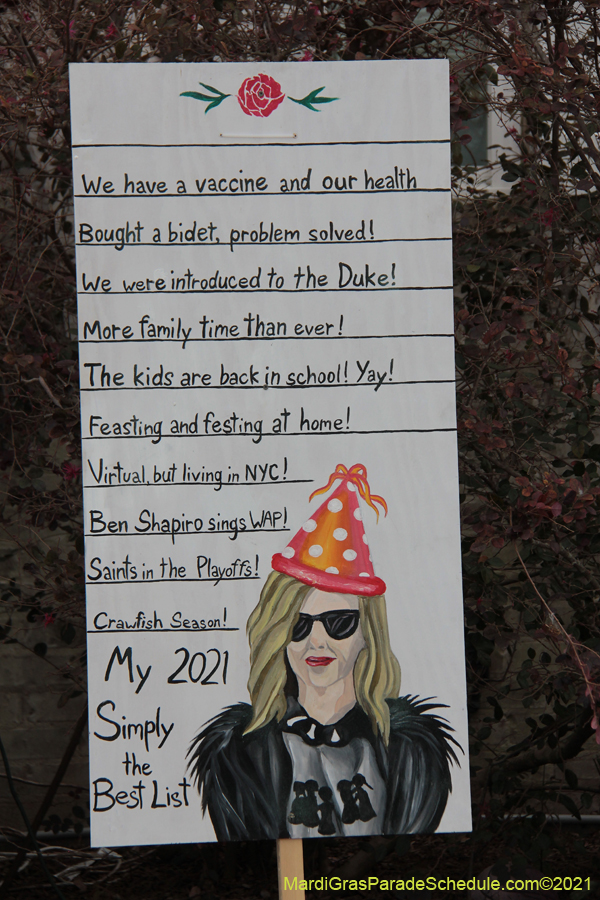 We have a vaccine and our health
Bought a bidet, problem solved!
We were introduced to the Duke!
More family time than ever!
The kids are back in school! Yay!
Feasting and festing at home!
Virtual, but living in NYC!
Ben Shapiro sings WAP!
Saints in the Playoffs!
Crawfish Season!
My 2021
Simply
the
Best List
MardiGrasParadeSchedule.com©2021